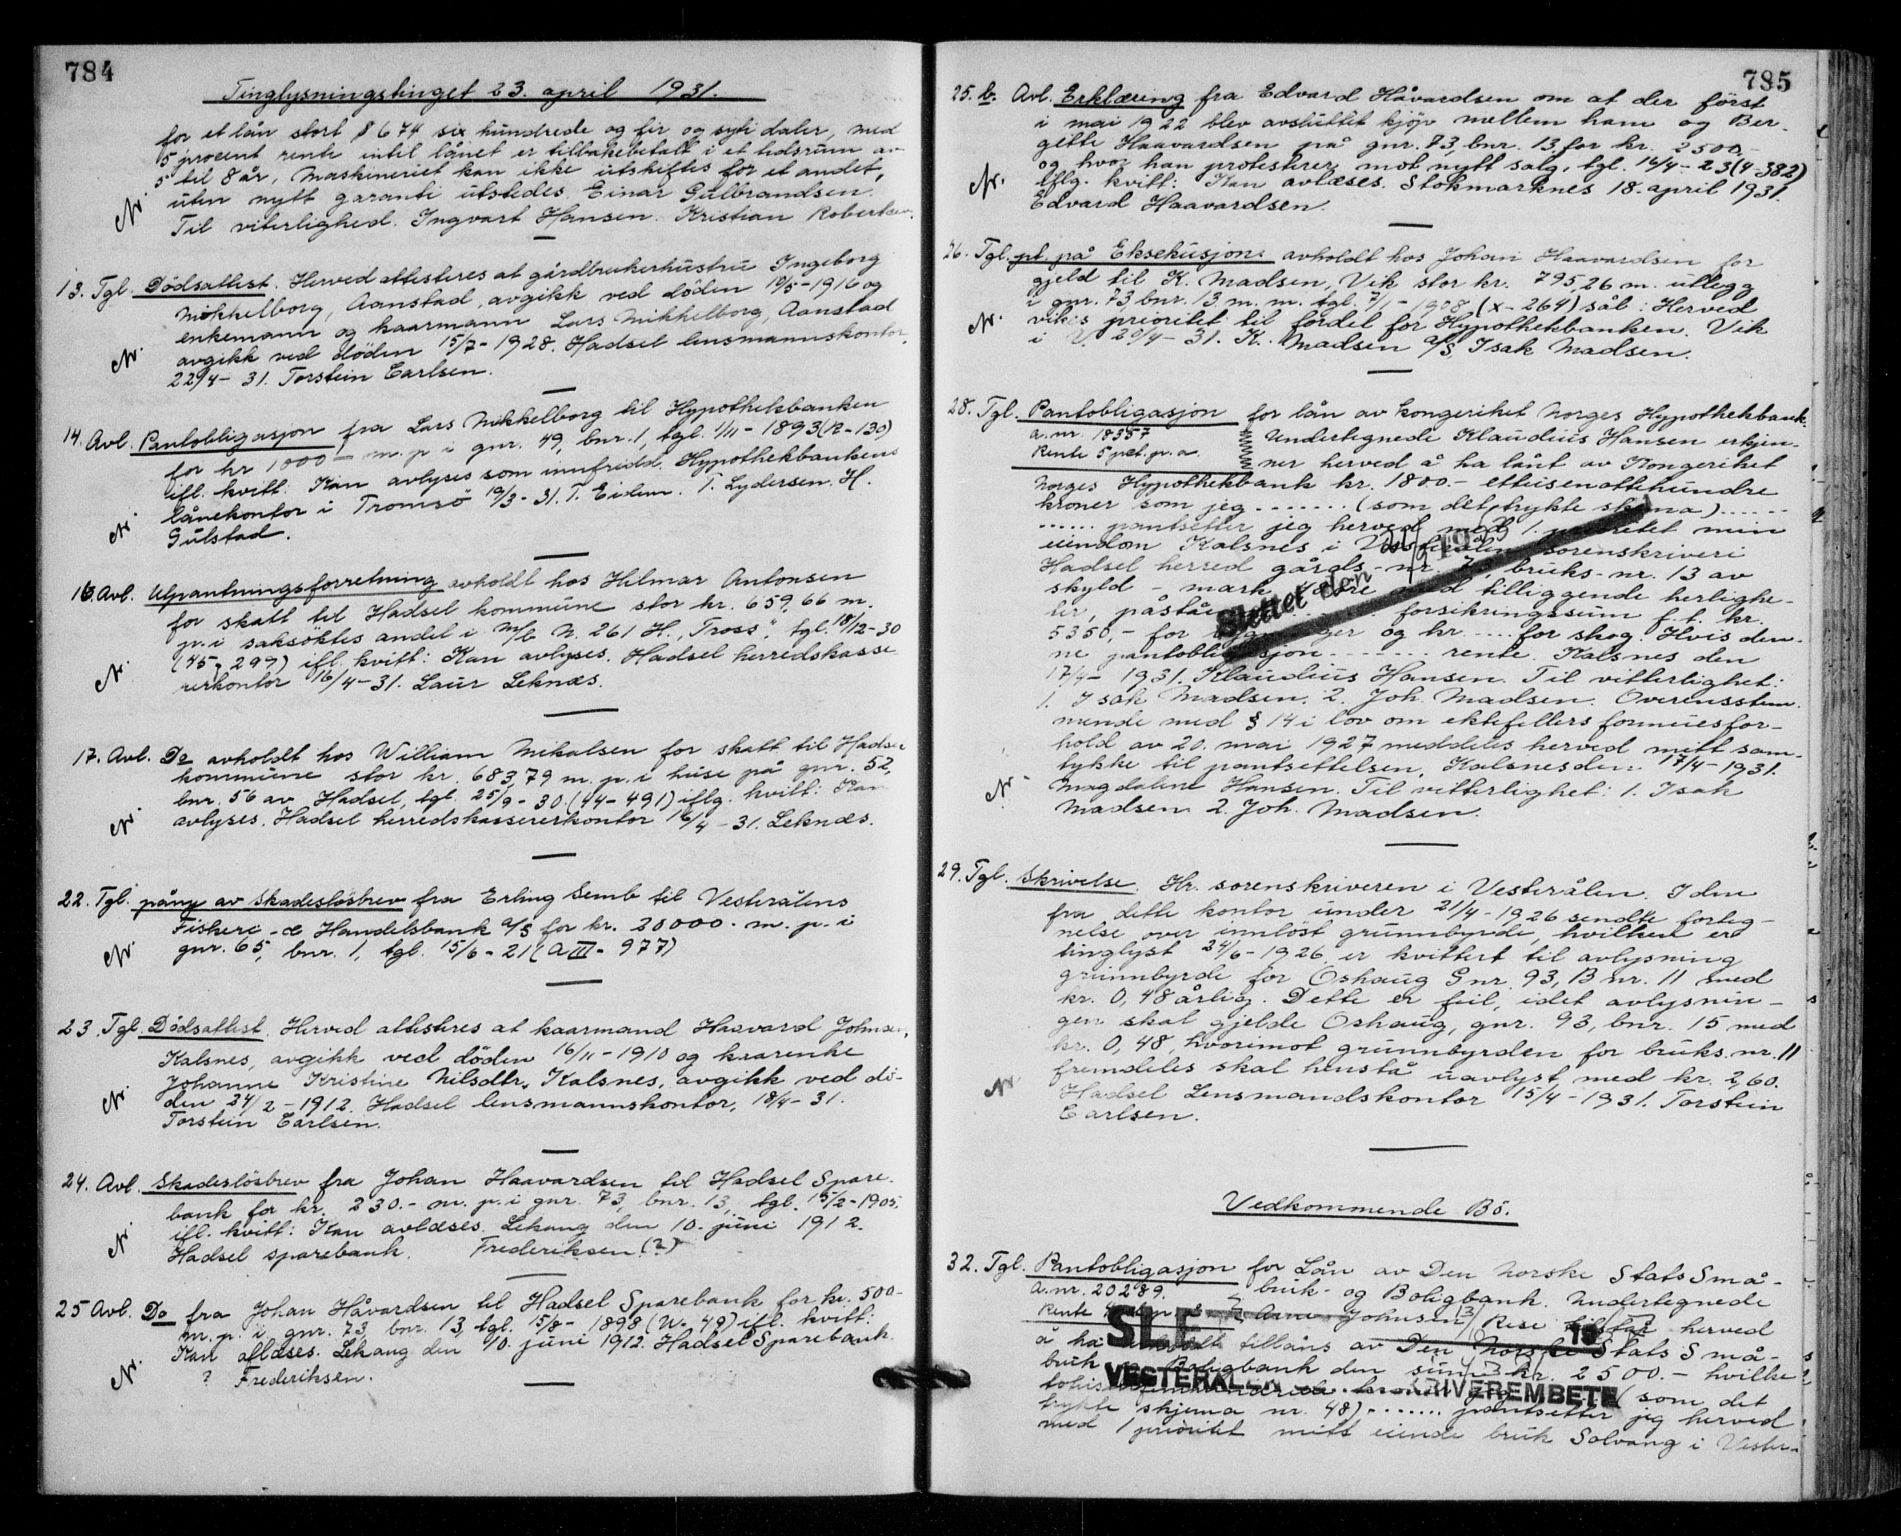 784
Tinglysningstinget 23. april 1931.
for et lån stort $ 674 six hundrede og fir og syti daler, med
5 procent rente intil lånet er tilbakebetalt i et tidsrum av
5 til 8 år, Maskineriet kan ikke utskiftes for et andet,
uten nytt garanti utstedes Einar Gulbrandsen.
Til viterlighed. Ingvart Hansen. Kristian Robertsen.
13. Tgl. Dödsattest. Herved attesteres at gårdbrukerhustru Ingeborg
Mikkelborg, Aanstad, avgikk ved döden 10/5-1916 og
enkemann og kaarmann Lars Mikkelborg, Aanstad
avgikk ved döden 15/7-1928. Hadsel lensmannskontor,
22/4-31. Torstein Carlsen.
14. Avl. Pantobligasjon fra Lars Mikkelborg til Hypothekbanken
for kr 1000 - m. p i gnr. 49, bnr. 1, tgl. 1/11-1893 (12-130)
ifl. kvitt. Kan avlyses som innfridd. Hypothekbankens
lånekontor i Tromsö 19/3-31. T. Eidem. T. Lydersen. H.
Gulstad.
16. Avl. Utpantningsforretning avholdt hos Hilmar Antonsen
for skatt til Hadsel kommune stor kr. 659,66 m.
p. i saksöktes andel i m/b N. 261 H. "Tross", tgl. 18/12-30
(45-297) ifl. kvitt: Kan avlyses. Hadsel herredskasse
rerkontor 16/4-31. Laur Leknæs.
17. Avl. Do avholdt hos William Mikalsen for skatt til Hadsel
kommune stor kr. 683,79 m. p. i huse på gnr. 52,
bnr. 56 av Hadsel, tgl. 25/9-30 (44-491) iflg. kvitt: Kan
avlyses. Hadsel herredskassererkontor 16/4-31. Leknæs.
22. Tgl. påny av Skadeslösbrev fra Erling Semb til Vesterålens
Fiskeri- & Handelsbank A/S for kr. 20000.- m. p. i
gnr. 65, bnr. 1, tgl. 15/6-21 (A III - 977)
23. Tgl. Dödsattest. Herved attesteres at kaarmand Haavard Johnsen,
Kalsnes, avgikk ved döden 16/11-1910 og kaarenke
Johanne Kristine Nilsdtr. Kalsnes, avgikk ved dö-
den 24/2-1912. Hadsel lensmannskontor, 18/4-31.
Torstein Carlsen.
24. Avl. Skadeslösbrev fra Johan Haavardsen til Hadsel Spare-
bank for kr. 230.- m. p. i gnr. 73, bnr. 13, tgl. 15/2-1905,
ifl. kvitt: Kan avlæses. Lekang den 10. juni 1912.
Hadsel sparebank. Frederiksen (?)
25 Avl. Do fra Johan Håvardsen til Hadsel Sparebank for kr. 500-
m. p. i gnr. 73, bnr. 13, tgl. 15/8-1898 (N-49) ifl. kvitt:
Kan aflæses. Lekang den 10. juni 1912. Hadsel Sparebank
? Frederiksen.
785
25. b. Avl. Erklæring fra Edvard Håvardsen om at der först
i mai 1922 blev avsluttet kjöp mellem ham og Ber-
gitte Haavardsen på gnr. 73, bnr. 13 for kr. 2500,-
og hvor han protesterer mot nytt salg, tgl. 16/4-23 (4-382)
iflg. kvitt: Kan avlæses. Stokmarknes 18. april 1931.
Edvard Haavardsen.
26. Tgl. pt. på Eksekusjon: avholdt hos Johan Haavardsen for
gjeld til K. Madsen, Vik stor kr. 795,26 m. utlegg
i gnr. 73 bnr. 13 m. m. tgl. 7/1-1928 (X-264) sål: Herved
vikes prioritet til fordel for Hypothekbanken. Vik
i V. 20/4-31. K. Madsen A/S, Isak Madsen.
28. Tgl. Pantobligasjon for lån av Kongeriket Norges Hypothekbank.
a. nr. 18357
Rente 5 pct. p. a.
Undertegnede Klaudius Hansen erkjen-
ner herved å ha lånt av Kongeriket
Norges Hypothekbank kr. 1800.- ettusenottehundre
kroner som jeg ....... (som det trykte skjema) ......
...... pantsetter jeg herved med 1. prioritet min
eiendom Kalsnes i Vesterålen sorenskriveri
Hadsel herred gårds-nr. 73, bruks-nr. 13 av
skyld - mark med tilliggende herlighe-
ter, påstå forsikringssum f. t. kr.
5350,- for og kr .... for skog. Hvis den-
ne pantobligasjon ....... rente. Kalsnes den
17/4-1931. Klaudius Hansen. Til vitterlighet:
1. Isak Madsen. 2. Joh. Madsen. Overensstem-
mende med § 14 i lov om ektefellers formuesfor-
hold av 20. mai 1927 meddeles herved mitt sam-
tykke til pantsettelsen, Kalsnes den 17/4-1931.
Magdalene Hansen. Til vitterlighet: 1. Isak
Madsen 2. Joh. Madsen.
Slettet den
29. Tgl. Skrivelse. Hr. sorenskriveren i Vesterålen. I den
fra dette kontor under 21/4-1926 sendte forteg-
nelse over innlöst grunnbyrde, hvilken er
tinglyst 24/6-1926, er kvittert til avlysning
grunnbyrde for Oshaug Gnr. 93, B nr. 11 med
kr. 0,48 årlig. Dette er feil, idet avlysnin-
gen skal gjelde Oshaug, gnr. 93, bnr. 15 med
kr. 0,48, hvorimot grunnbyrden for bruks. nr. 11
fremdeles skal henstå uavlyst med kr. 2,60.
Hadsel Lensmandskontor 15/4-1931. Torstein
Carlsen.
Vedkommende Bö.
32. Tgl. Pantobligasjon for Lån av Den Norske Stats Små-
a. nr. 20289.
bruk- og Boligbank. Undertegnede
Rente
Arne Johnsen Rise herved
å ha tillåns av Den Norske Stats Små-
bruk Boligbank den sum kr. 2500.- hvilke
(som det
trykte skjema nr. 48) ....... pantsetter jeg herved
med 1 prioritet mitt eiende bruk Solvang i Vester-
SLE 19
VESTERÅLEN SKRIVEREMBETE